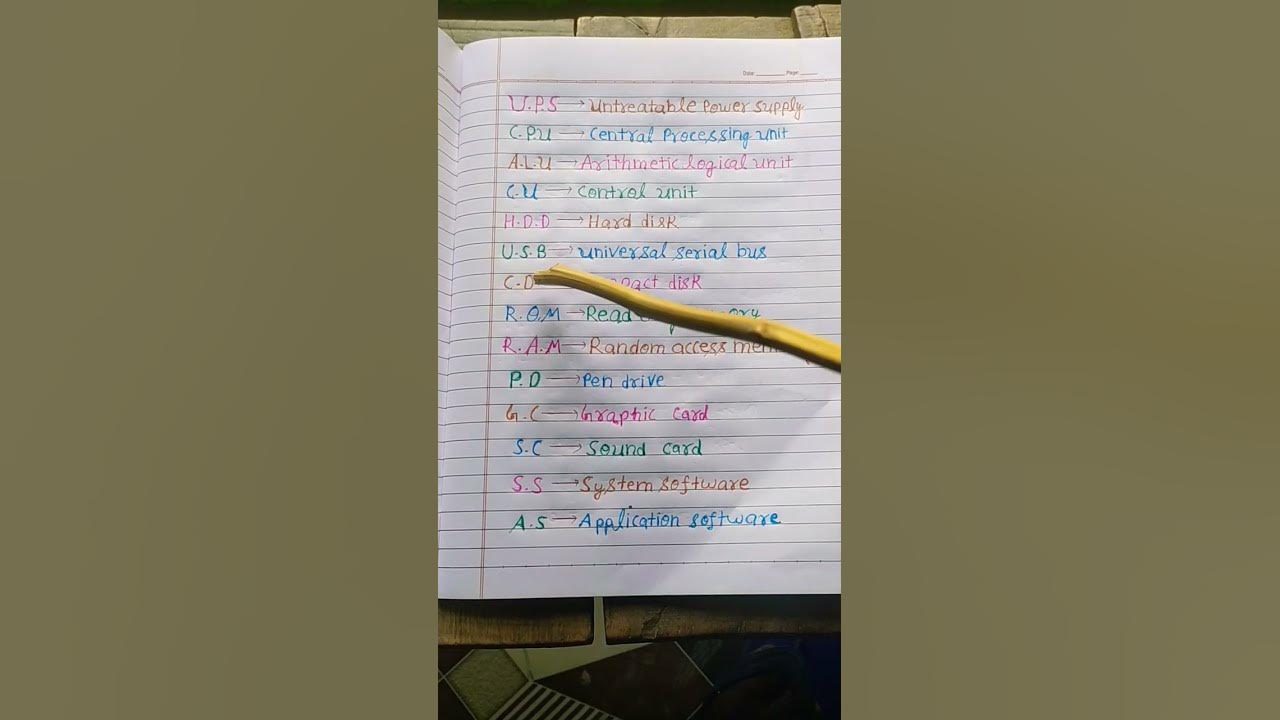 Date: Page:
U.P.S → Untreatable Power supply
C.P.U → Central Processing unit
A.L.U → Arithmetic logical unit
C.U → Control unit
H.D.D → Hard disk
U.S.B → universal serial bus
C.D disk
R.O.M → Read
R.A.M → Random access
P.D → Pen drive
G.C → Graphic card
S.C → Sound card
S.S → System software
A.S → Application software